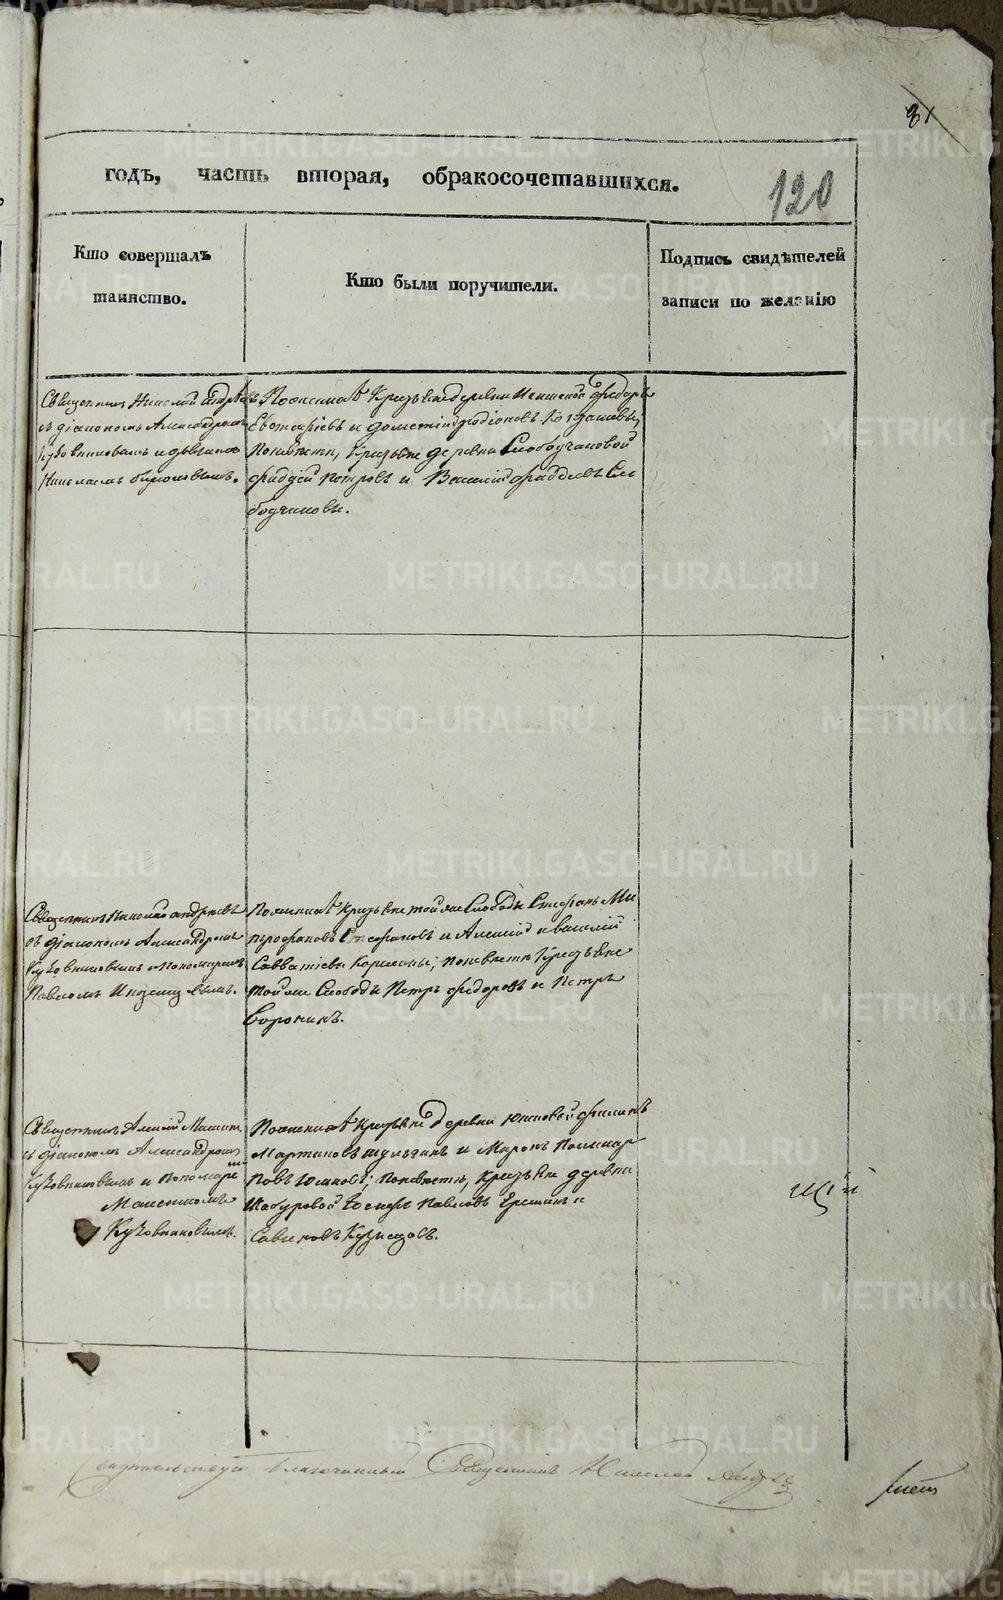 81
годъ, часть вторая, обракосочетавшихся.
120
Кто совершалъ
таинство.
Кто были поручители.
Подпись свидѣтелей
записи по желанію
Священникъ Николай Андрѣевъ
съ діакономъ Александромъ
Кузовниковымъ и дьячкомъ
Николаемъ
По женихѣ Крестьяне деревни Федоръ
Евстафіевъ и Дометій Родіоновъ
По невѣстѣ, Крестьяне деревни Слободчиковой
Фаддей Петровъ и Василій Фаддеевъ Сло
бодчиковы.
Священникъ Николай Андреевъ
съ діакономъ Александромъ
Кузовниковымъ и Пономаремъ
Павломъ Иноземцовымъ.
По женихѣ Крестьяне той же Слободы Стефанъ Ми
трофановъ Стефановъ и Алексій и Василій
Савватіевы Корелины; по невѣстѣ Крестьяне
той же Слободы Петръ Федоровъ и Петръ
Воронинъ.
Священникъ Алексій
съ діакономъ Александромъ
Кузовниковымъ и Пономаремъ
Кузовниковымъ.
По женихѣ Крестьяне деревни Юшковой Филипъ
Мартиновъ и Миронъ
по невѣстѣ, Крестьяне деревни
Шабуровой Іосифъ Павловъ Ереминъ и
Савиновъ Кузнецовъ.
щій
Свидѣтельствуетъ благочинный Священникъ Николай
листъ
METRIKI.GASO-URAL.RU